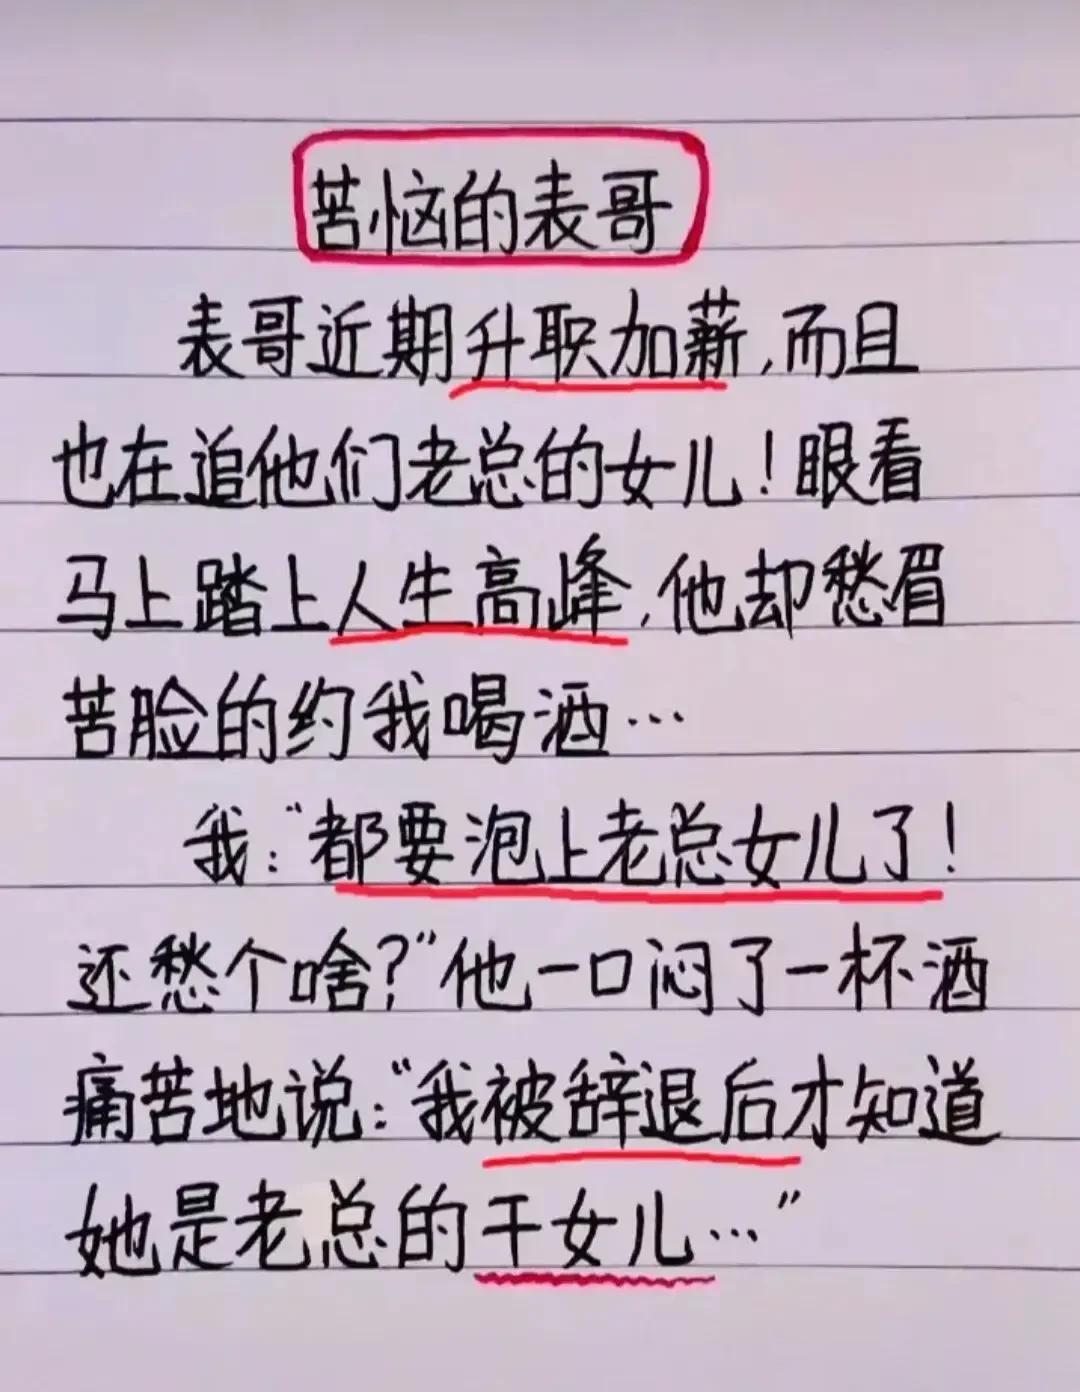 苦恼的表哥
表哥近期升职加薪,而且
也在追他们老总的女儿!眼看
马上踏上人生高峰,他却愁眉
苦脸的约我喝酒…
我:“都要泡上老总女儿了!
还愁个啥?”他一口闷了一杯酒
痛苦地说:“我被辞退后才知道
她是老总的干女儿…”